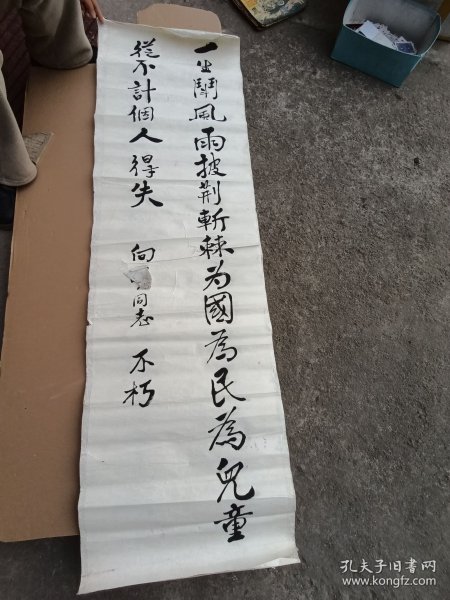 一生鬪風雨披荆斬棘为國為民為兒童
從不計個人得失 向 同志 不朽
孔夫子旧书网
www.kongfz.com